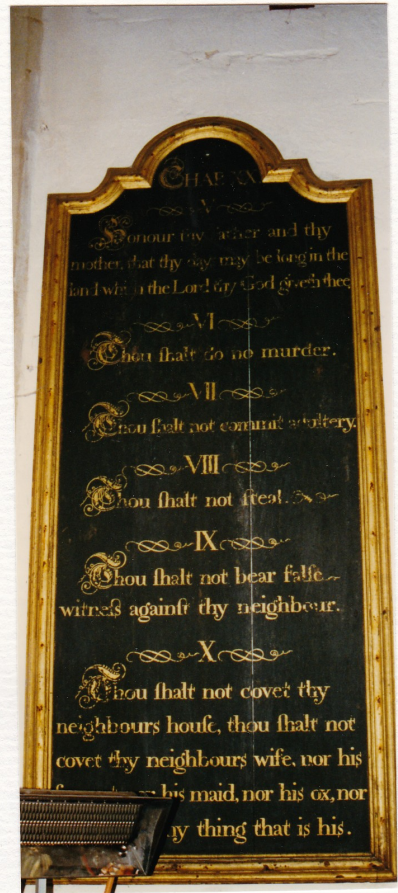 CHAP. XX
V
Honour thy father and thy
mother, that thy day may be long in the
land which the Lord thy God giveth thee
VI
Thou ſhalt do no murder.
VII
Thou ſhalt not commit adultery.
VIII
Thou ſhalt not ſteal.
IX
Thou ſhalt not bear falſe
witneſs againſt thy neighbour.
X
Thou ſhalt not covet thy
neighbours houſe, thou ſhalt not
covet thy neighbours wife, nor his
his maid, nor his ox, nor
thing that is his.